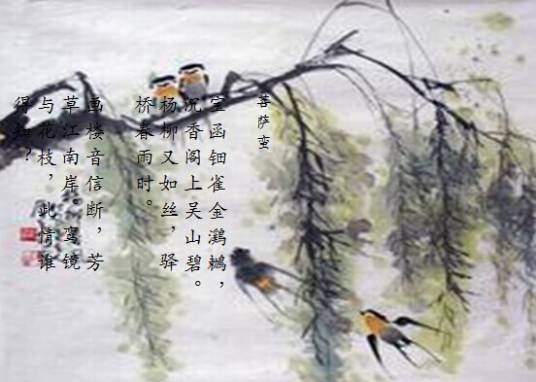 菩萨蛮
宝函钿雀金鸂鶒，
沉香阁上吴山碧。
杨柳又如丝，驿
桥春雨时。
画楼音信断，芳
草江南岸。鸾镜
与花枝，此情谁
得知？